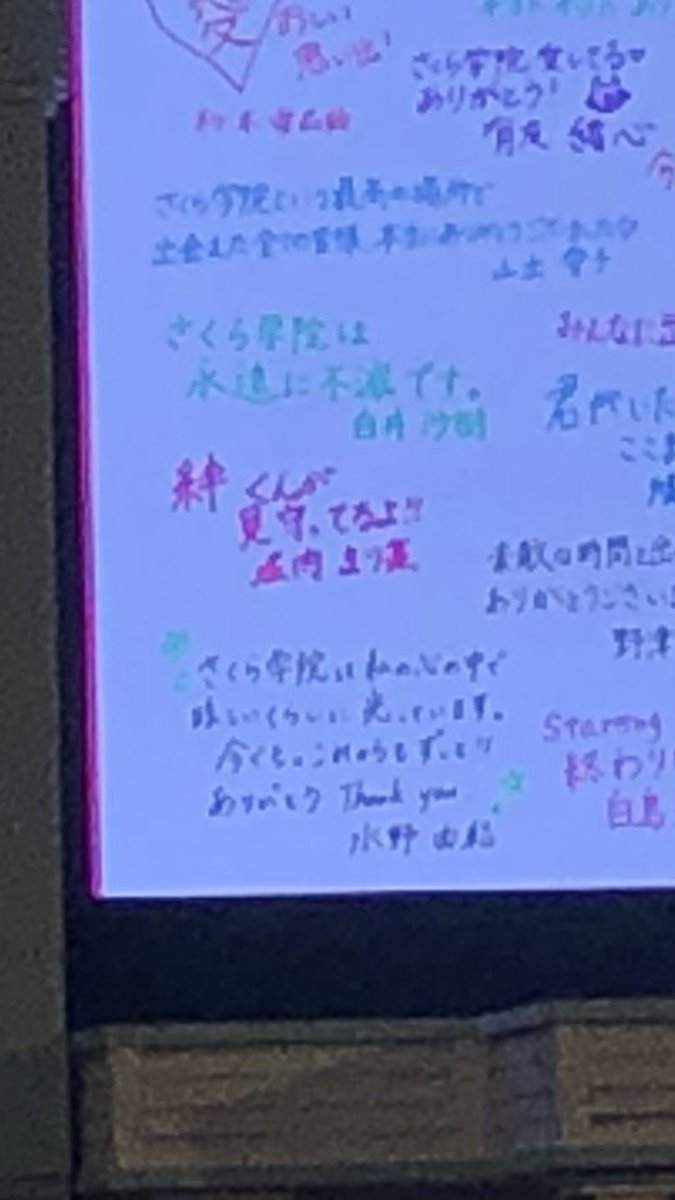 愛
おしい
思い出!
さくら学院愛してる♡
ありがとう!
有友 緒心
さくら学院という最高の場所で
出会えた全ての皆様、本当にありがとうございました
山出 愛子
さくら学院は
永遠に不滅です。
白井 沙樹
みんなに
君がいた
ここ
絆 くんが
見守ってるよ!!
武内
素敵な時間と出
ありがとうござい
野津
さくら学院は私の心の中で
眩しいくらいに光っています。
今までも。これからもずっと!!
ありがとう Thank you
水野 由結
Starting
終わり
白鳥